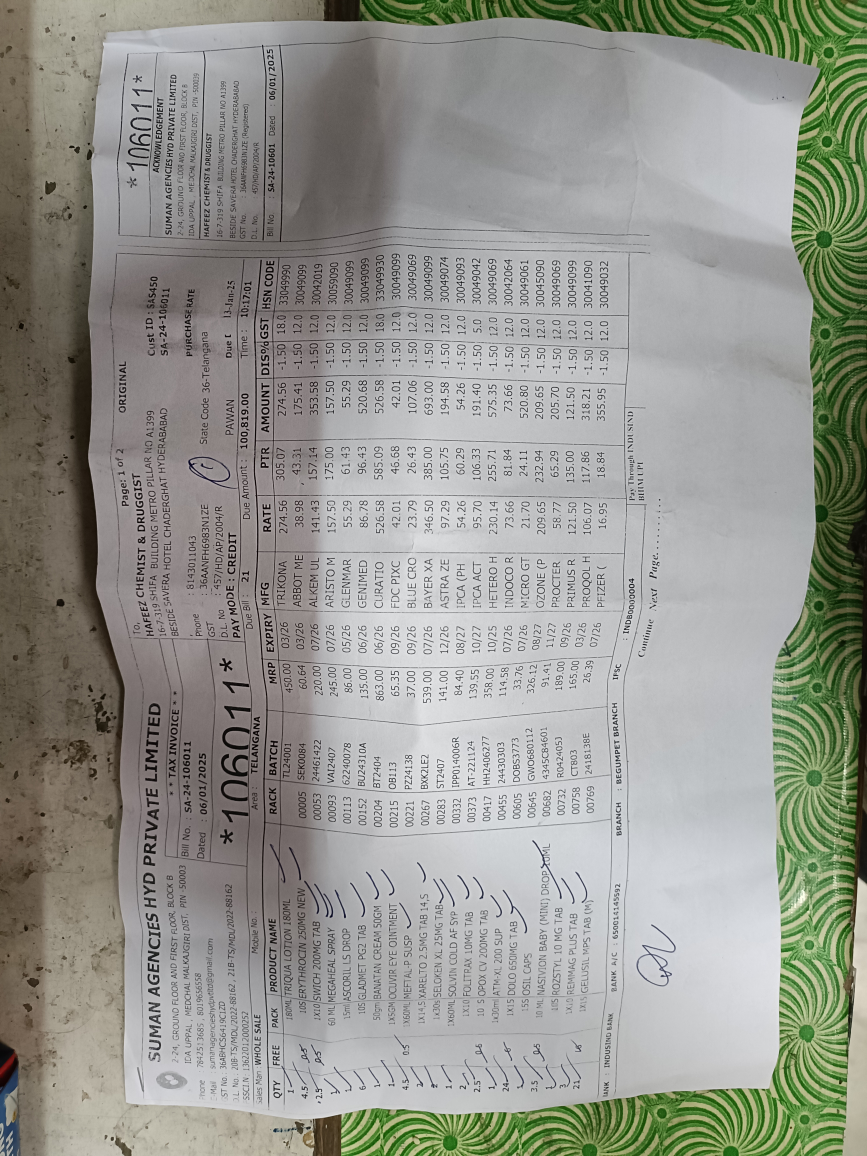 SUMAN AGENCIES HYD PRIVATE LIMITED
* * TAX INVOICE * *
7-24, GROUND FLOOR AND FIRST FLOOR, BLOCK B
IDA UPPAL, MEDCHAL MALKAJGIRI DIST, PIN -50003
Phone : 7842513685 : 8019656558
GST No. : 36ABHCS6419C1ZN
D.L. No. 20B-TS/MDL/2022-88162 , 21B-TS/MDL/2022-88162
FSSCI.N : 13622012000252
Sales Man WHOLE SALE
Mobile No.
Area : TELANGANA
Bill No. : SA-24-106011
Dated : 06/01/2025
*106011*
Page: 1 of 2
ORIGINAL
To,
HAFEEZ CHEMIST & DRUGGIST
16-7-319 SHIFA BUILDING METRO PILLAR NO A1399
BESIDE SAVERA HOTEL CHADERGHAT HYDERABABAD
Cust ID : SAS450
SA-24-106011
Phone : 8143011043
PURCHASE RATE
GST : 36AANFH6983N1ZE State Code 36-Telangana
D.L. No : 457/HD/AP/2004/R
PAY MODE : CREDIT PAWAN Due 13-Jan-25
Due Bill : 21 Due Amount : 100,819.00 Time : 10:17:01
QTY FREE PACK PRODUCT NAME RACK BATCH MRP EXPIRY MFG RATE PTR AMOUNT DIS% GST HSN CODE
1 180ML TRIQUA LOTION 180ML TL24001 450.00 03/26 TRIKONA 274.56 305.07 274.56 -1.50 18.0 33049990
4.5 0.5 10S ERYTHROCIN 250MG NEW 00005 SEK0084 60.64 03/26 ABBOT ME 38.98 43.31 175.41 -1.50 12.0 30049099
2.5 0.5 1X10 SWICH 200MG TAB 00053 24461422 220.00 07/26 ALKEM UL 141.43 157.14 353.58 -1.50 12.0 30042019
1 60 ML MEGAHEAL SPRAY 00093 VAI2407 245.00 07/26 ARISTO M 157.50 175.00 157.50 -1.50 12.0 30059090
1 15ml ASCORILLS DROP 00113 62240078 86.00 05/26 GLENMAR 55.29 61.43 55.29 -1.50 12.0 30049099
6 10S GLADMET PG2 TAB 00152 BU24310A 135.00 06/26 GENIMED 86.78 96.43 520.68 -1.50 12.0 30049099
1 50gm BANATAN CREAM 50GM 00204 BT2404 863.00 06/26 CURATIO 526.58 585.09 526.58 -1.50 18.0 33049930
1 OCUVIR EYE OINTMENT 00215 OB113 65.35 09/26 FDC PIXC 42.01 46.68 42.01 -1.50 12.0 30049099
4.5 0.5 1X60ML MEFTAL-P SUSP 00221 PZ24138 37.00 09/26 BLUE CRO 23.79 26.43 107.06 -1.50 12.0 30049069
2 1X14,5 XARELTO 2.5MG TAB 14,S 00267 BXK2LE2 539.00 07/26 BAYER XA 346.50 385.00 693.00 -1.50 12.0 30049099
2 1x30s SELOKEN XL 25MG TAB 00283 ST2407 141.00 12/26 ASTRA ZE 97.29 105.75 194.58 -1.50 12.0 30049074
1 1X60ML SOLVIN COLD AF SYP 00332 IPP014006R 84.40 08/27 IPCA (PH 54.26 60.29 54.26 -1.50 12.0 30049093
2 1X10 FOLITRAX 10MG TAB 00373 AT-221124 139.55 10/27 IPCA ACT 95.70 106.33 191.40 -1.50 5.0 30049042
2.5 10 S OPOX CV 200MG TAB 00417 HH2406277 358.00 10/25 HETERO H 230.14 255.71 575.35 -1.50 12.0 30049069
1 1x30ml ATM-XL 200 SUP 00455 24430303 114.58 07/26 INDOCO R 73.66 81.84 73.66 -1.50 12.0 30042064
24 1X15 DOLO 650MG TAB 00605 DOBS3773 33.76 07/26 MICRO GT 21.70 24.11 520.80 -1.50 12.0 30049061
1 15S OSIL CAPS 00645 GWO680112 326.12 08/27 OZONE (P 209.65 232.94 209.65 -1.50 12.0 30045090
3.5 0.5 10 ML NASIVION BABY (MINI) DROP 10ML 00682 4345C84601 91.41 11/27 PROCTER 58.77 65.29 205.70 -1.50 12.0 30049069
1 ROZSTYL 10 MG TAB 00732 R0424053 189.00 09/26 PRIMUS R 121.50 135.00 121.50 -1.50 12.0 30049099
3 1X10 REMMAG PLUS TAB 00758 CTB03 165.00 03/26 PROQOL H 106.07 117.86 318.21 -1.50 12.0 30041090
21 1X15 GELUSIL MPS TAB (M) 00769 2418138E 26.39 07/26 PFIZER ( 16.95 18.84 355.95 -1.50 12.0 30049032
BANK : INDUSIND BANK BANK A/C : 650014145592 BRANCH : BEGUMPET BRANCH IFSC : INDB0000004
Pay Through INDUSIND
BHIM UPI
Continue Next Page.........
*106011*
ACKNOWLEDGEMENT
SUMAN AGENCIES HYD PRIVATE LIMITED
7-24, GROUND FLOOR AND FIRST FLOOR, BLOCK B
IDA UPPAL, MEDCHAL MALKAJGIRI DIST, PIN -500039
HAFEEZ CHEMIST & DRUGGIST
16-7-319 SHIFA BUILDING METRO PILLAR NO A1399
BESIDE SAVERA HOTEL CHADERGHAT HYDERABABAD
GST No. : 36AANFH6983N1ZE (Registered)
D.L No. 457/HD/AP/2004/R
Bill No : SA-24-10601 Dated : 06/01/2025